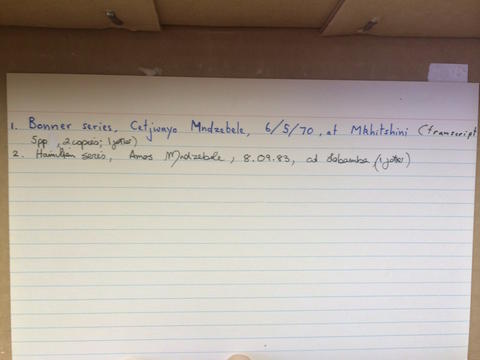 1. Bonner series, Cetjwayo Mndzebele, 6/5/70, at Mkhitshini (transcript
5pp, 2 copies; 1 jotter)
2. Hamilton series, Amos Mndzebele, 8.09.83, at Lobamba (1 jotter)